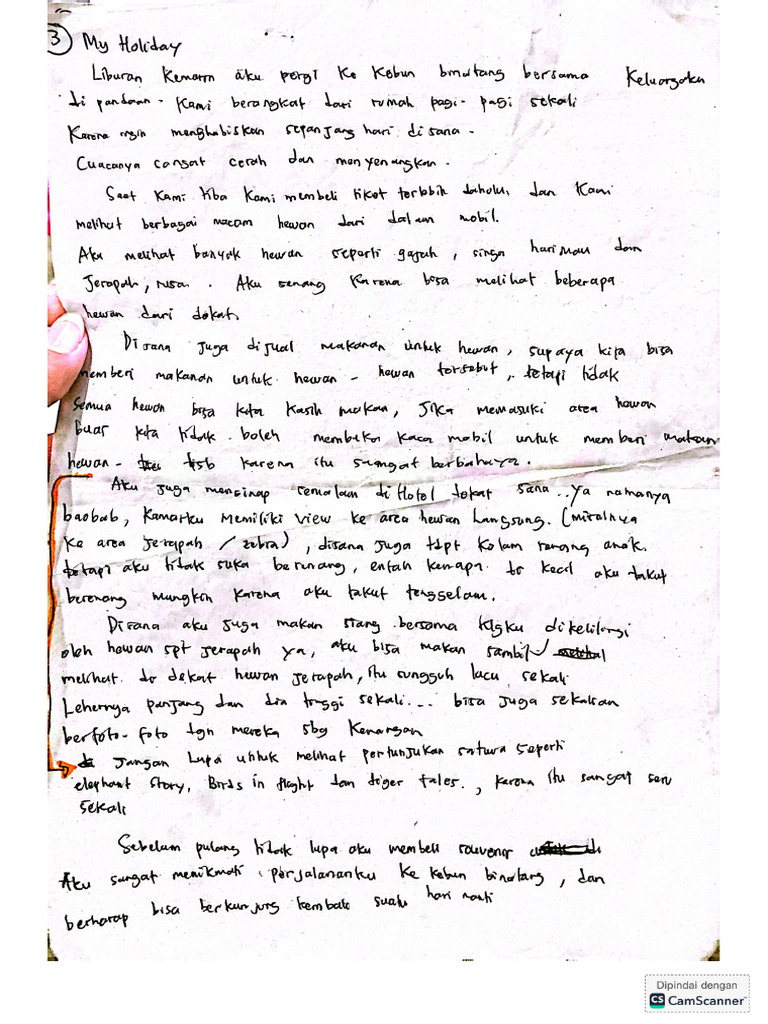 3 My Holiday
Liburan Kemarin aku pergi Ke Kebun binatang bersama Keluargaku
di pandaan. Kami berangkat dari rumah pagi-pagi sekali
Karena ingin menghabiskan sepanjang hari disana.
Cuacanya sangat cerah dan menyenangkan.
Saat Kami tiba Kami membeli tiket terlebih dahulu, dan Kami
melihat berbagai macam hewan dari dalam mobil.
Aku melihat banyak hewan seperti gajah, singa harimau dan
Jerapah, rusa. Aku senang Karena bisa melihat beberapa
hewan dari dekat.
Disana juga dijual makanan untuk hewan, supaya kita bisa
memberi makanan untuk hewan-hewan tersebut, tetapi tidak
Semua hewan bisa kita Kasih makan, Jika memasuki area hewan
buas kita tidak boleh membuka kaca mobil untuk memberi makan
hewan- tsb karena itu sangat berbahaya.
Aku juga menginap semalam di Hotel dekat sana.. ya namanya
baobab, Kamarku Memiliki View ke area hewan Langsung. (misalnya
Ke area Jerapah / zebra), disana juga tdpt Kolam renang anak.
tetapi aku tidak suka berenang, entah kenapa dr kecil aku takut
berenang mungkin Karena aku takut tenggelam.
Disana aku juga makan siang bersama Klgku dikelilingi
oleh hewan spt jerapah ya, aku bisa makan sambil
melihat dr dekat hewan jerapah, itu sungguh lucu sekali
Lehernya panjang dan dia tinggi sekali... bisa juga sekalian
berfoto-foto dgn mereka sbg Kenangan
Jangan Lupa untuk melihat pertunjukan satwa seperti
elephant Story, Birds in flight dan tiger tales., karena itu sangat seru
sekali
Sebelum pulang tidak lupa aku membeli souvenir
Aku sangat menikmati perjalananku Ke Kebun binatang, dan
berharap bisa berkunjung kembali suatu hari nanti
Dipindai dengan
CS CamScanner